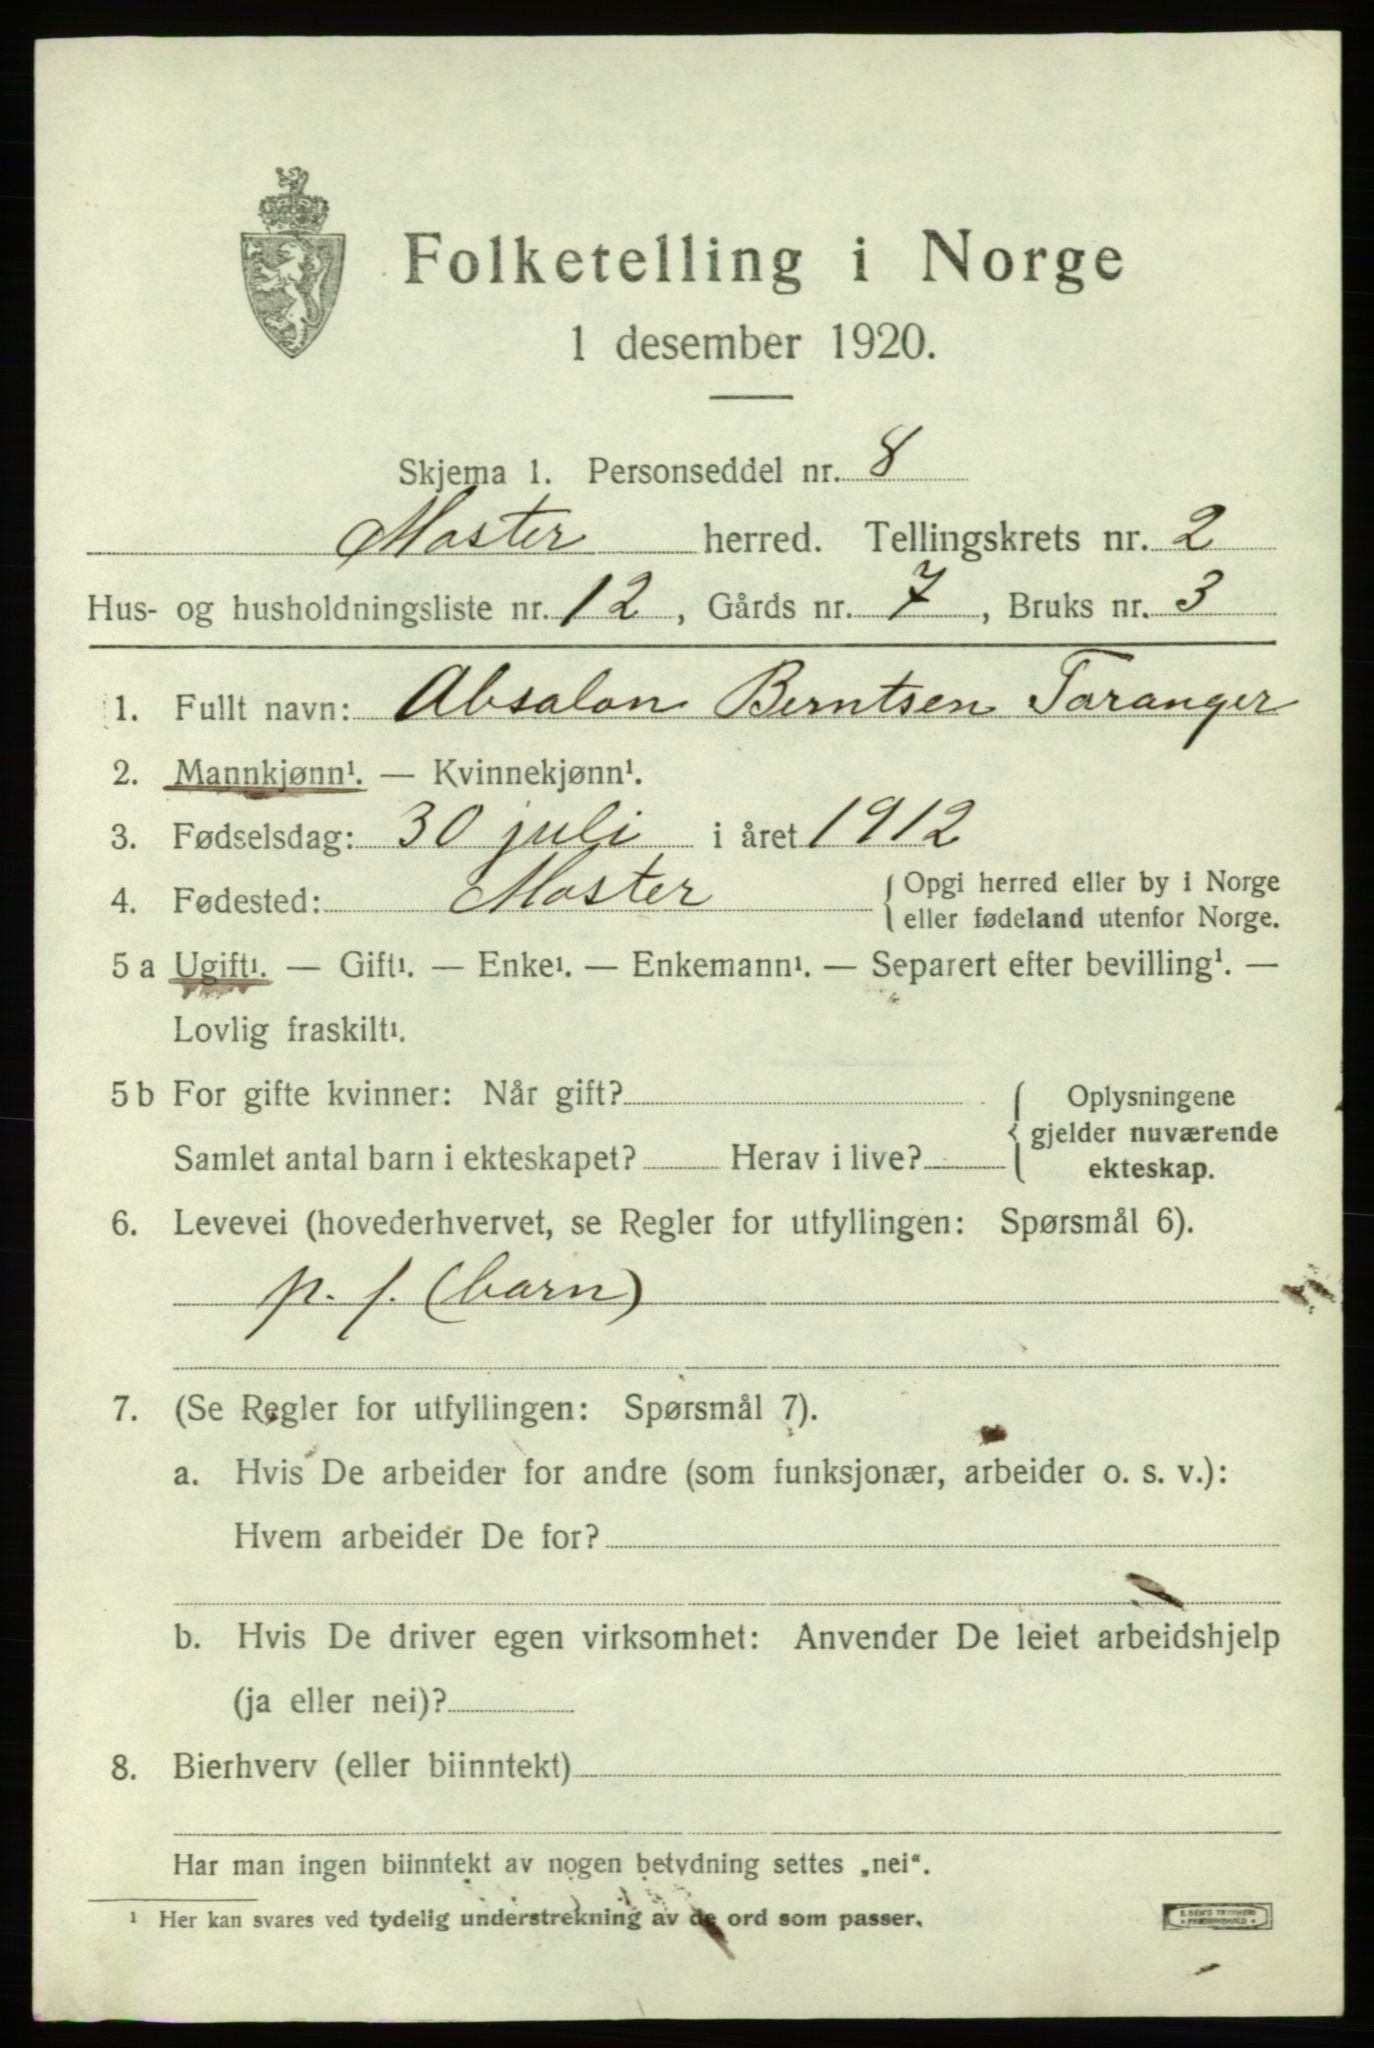 Folketelling i Norge
1 desember 1920.
Skjema 1. Personseddel nr. 8
Moster herred. Tellingskrets nr. 2
Hus- og husholdningsliste nr. 12, Gårds nr. 7, Bruks nr. 3
1. Fullt navn: Absalon Berntsen Taranger
2. Mannkjønn¹. — Kvinnekjønn¹.
3. Fødselsdag: 30 juli i året 1912
4. Fødested: Moster { Opgi herred eller by i Norge
eller fødeland utenfor Norge.
5 a Ugift¹. — Gift¹. — Enke¹. — Enkemann¹. — Separert efter bevilling¹. —
Lovlig fraskilt¹.
5 b For gifte kvinner: Når gift? { Oplysningene
gjelder nuværende
Samlet antal barn i ekteskapet? Herav i live? ekteskap.
6. Levevei (hovederhvervet, se Regler for utfyllingen: Spørsmål 6).
p. f. (barn)
7. (Se Regler for utfyllingen: Spørsmål 7).
a. Hvis De arbeider for andre (som funksjonær, arbeider o. s. v.):
Hvem arbeider De for?
b. Hvis De driver egen virksomhet: Anvender De leiet arbeidshjelp
(ja eller nei)?
8. Bierhverv (eller biinntekt)
Har man ingen biinntekt av nogen betydning settes „nei“.
¹ Her kan svares ved tydelig understrekning av de ord som passer.